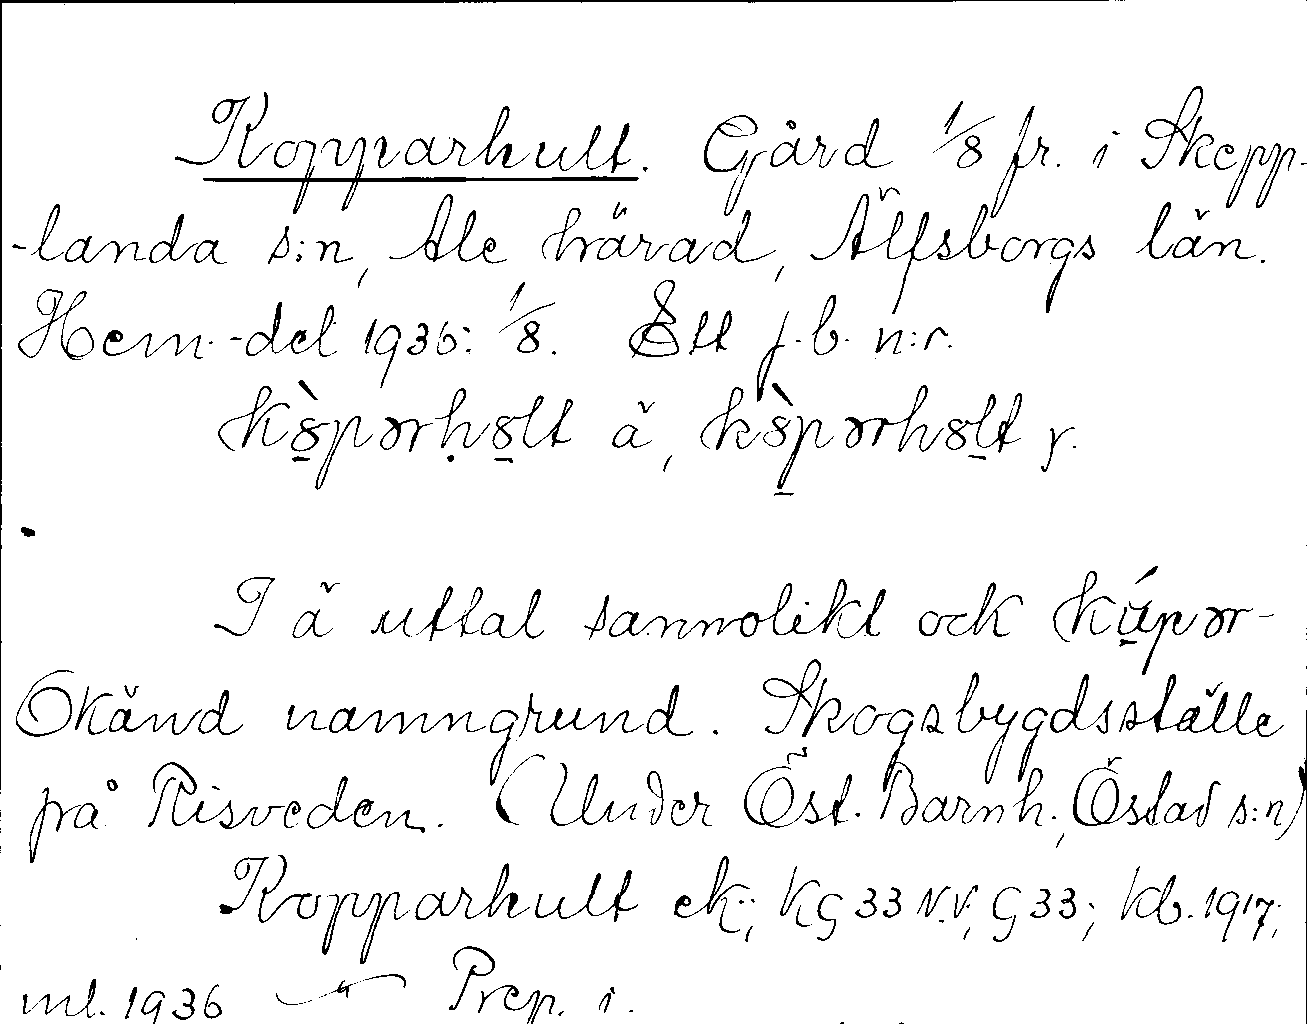 Kopparhult. Gård 1/8 fr. i Skepp-
-landa s:n, Ale härad, Älfsborgs län.
Hem.-del 1936: 1/8. Ett j.b. n:r.
I ä uttal sannolikt ock
Okänd namngrund. Skogsbygdsställe
på Risveden. (Under Öst. Barnh., Östad s:n)
Kopparhult ek.; KG 33 N.V., G 33; kb. 1917;
ml. 1936 — " — Prep. i.